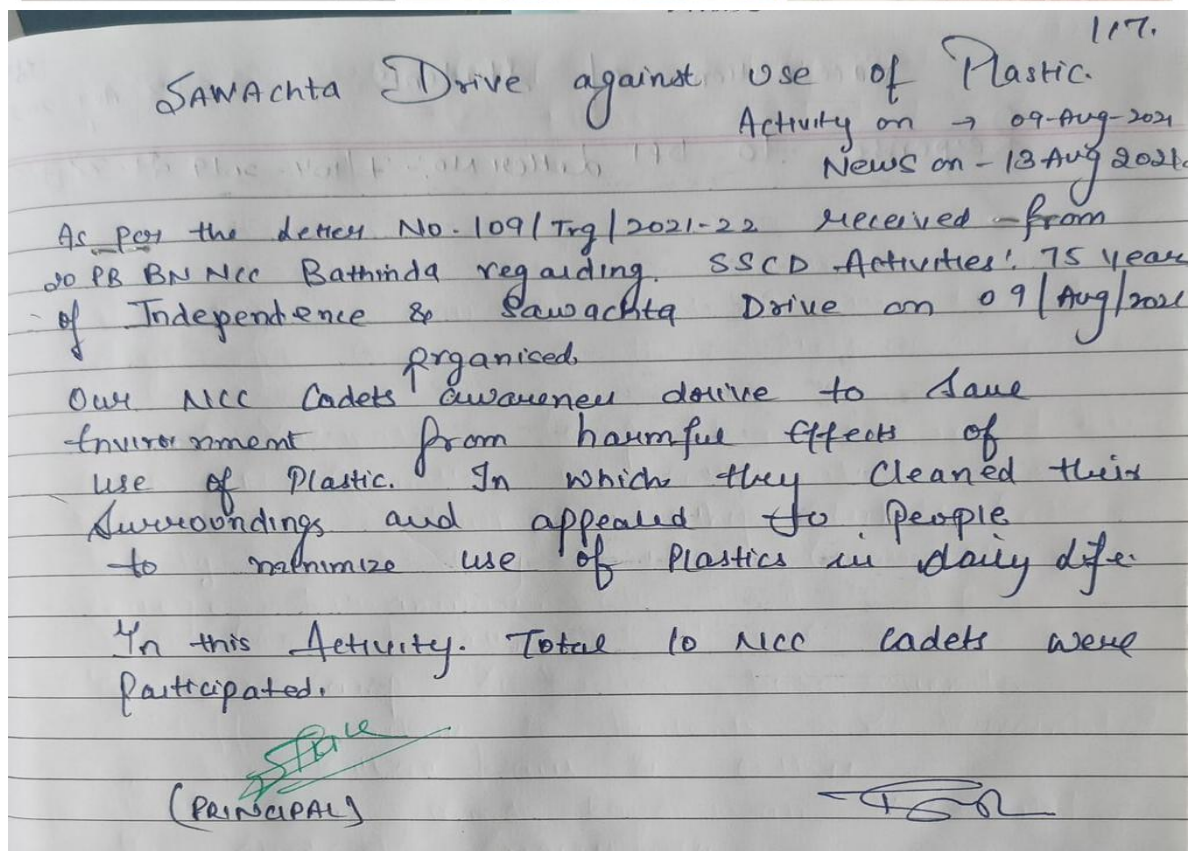 117.
SAWAchta Drive against use of Plastic.
Activity on → 09-Aug-2021
News on - 13 Aug 2021.
As per the letter No. 109/Trg/2021-22 received from
20 PB BN NCC Bathinda regarding. SSCD Activities: 75 year
of Independence & Sawachta Drive on 09/Aug/2021
organised
Our NCC Cadets awareness drive to save
Environment from harmful effects of
use of Plastic. In which they Cleaned their
Surroundings and appealed to People
to use of Plastics in daily life.
In this Activity. Total 10 NCC cadets were
Participated.
(PRINCIPAL)